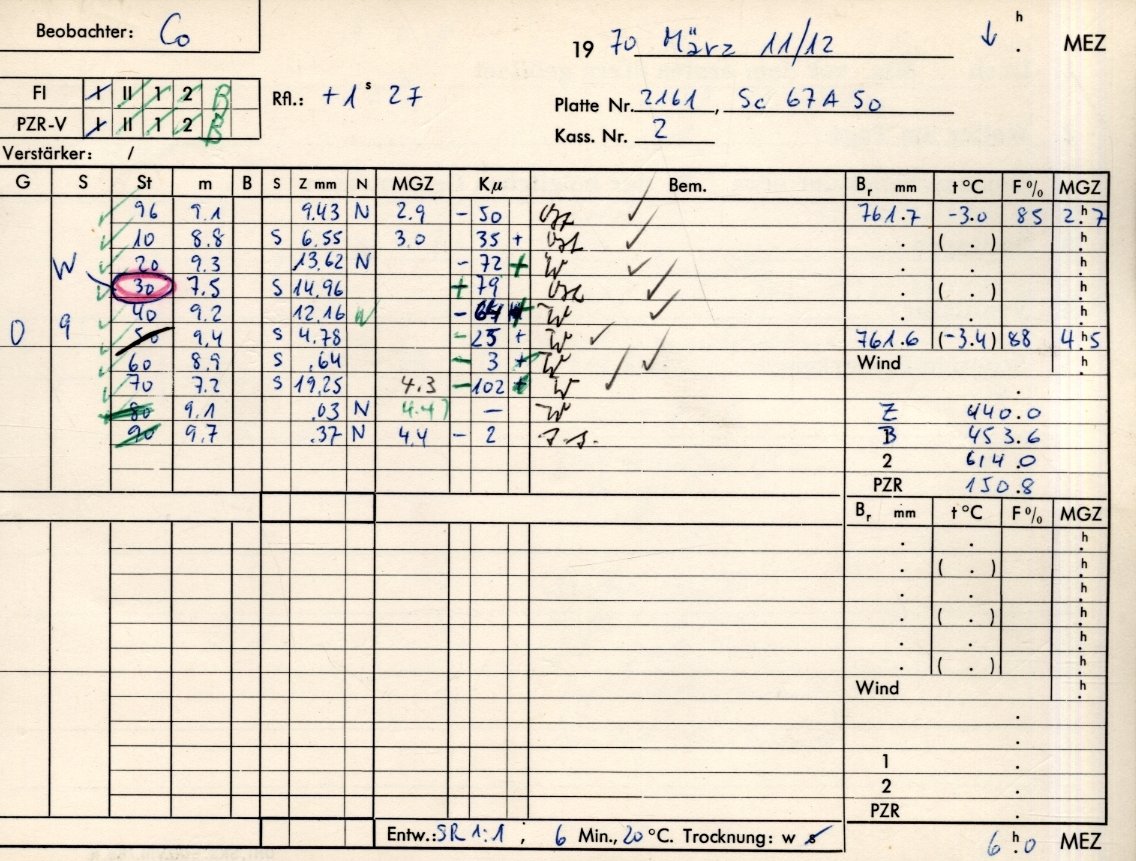 Beobachter: Co
19 70 März 11/12 ↓ h . MEZ
FI I II 1 2 B
PZR-V I II 1 2 B
Rfl.: +1 s 27
Platte Nr. 2161, Sc 67A50
Kass. Nr. 2
Verstärker: /
G S St m B S Z mm N MGZ Kμ Bem. Br mm t °C F % MGZ
96 9.1 9.43 N 2.9 - 50 Ost ✓ 761.7 -3.0 85 2.h7
10 8.8 S 6.55 3.0 35 + Ost ✓ . ( . ) h
W 20 9.3 13.62 N - 72 + W ✓ . . h
30 7.5 S 14.96 + 79 Ost ✓ . ( . ) h
40 9.2 12.16 N - + W ✓ . . h
0 9 50 9.4 S 4.78 - 25 + W ✓ 761.6 (-3.4) 88 4.h5
60 8.9 S .64 - 3 + W ✓ Wind h
70 7.2 S 19.25 4.3 - 102 + W ✓ .
80 9.1 .03 N 4.4) — W Z 440.0
90 9.7 .37 N 4.4 - 2 B 453.6
2 614.0
PZR 150.8
Br mm t °C F % MGZ
. . h
. ( . ) h
. . h
. ( . ) h
. . h
. ( . ) h
Wind h
.
.
1 .
2 .
PZR .
Entw.: SR 1:1 ; 6 Min., 20 °C. Trocknung: w s
6 h.0 MEZ